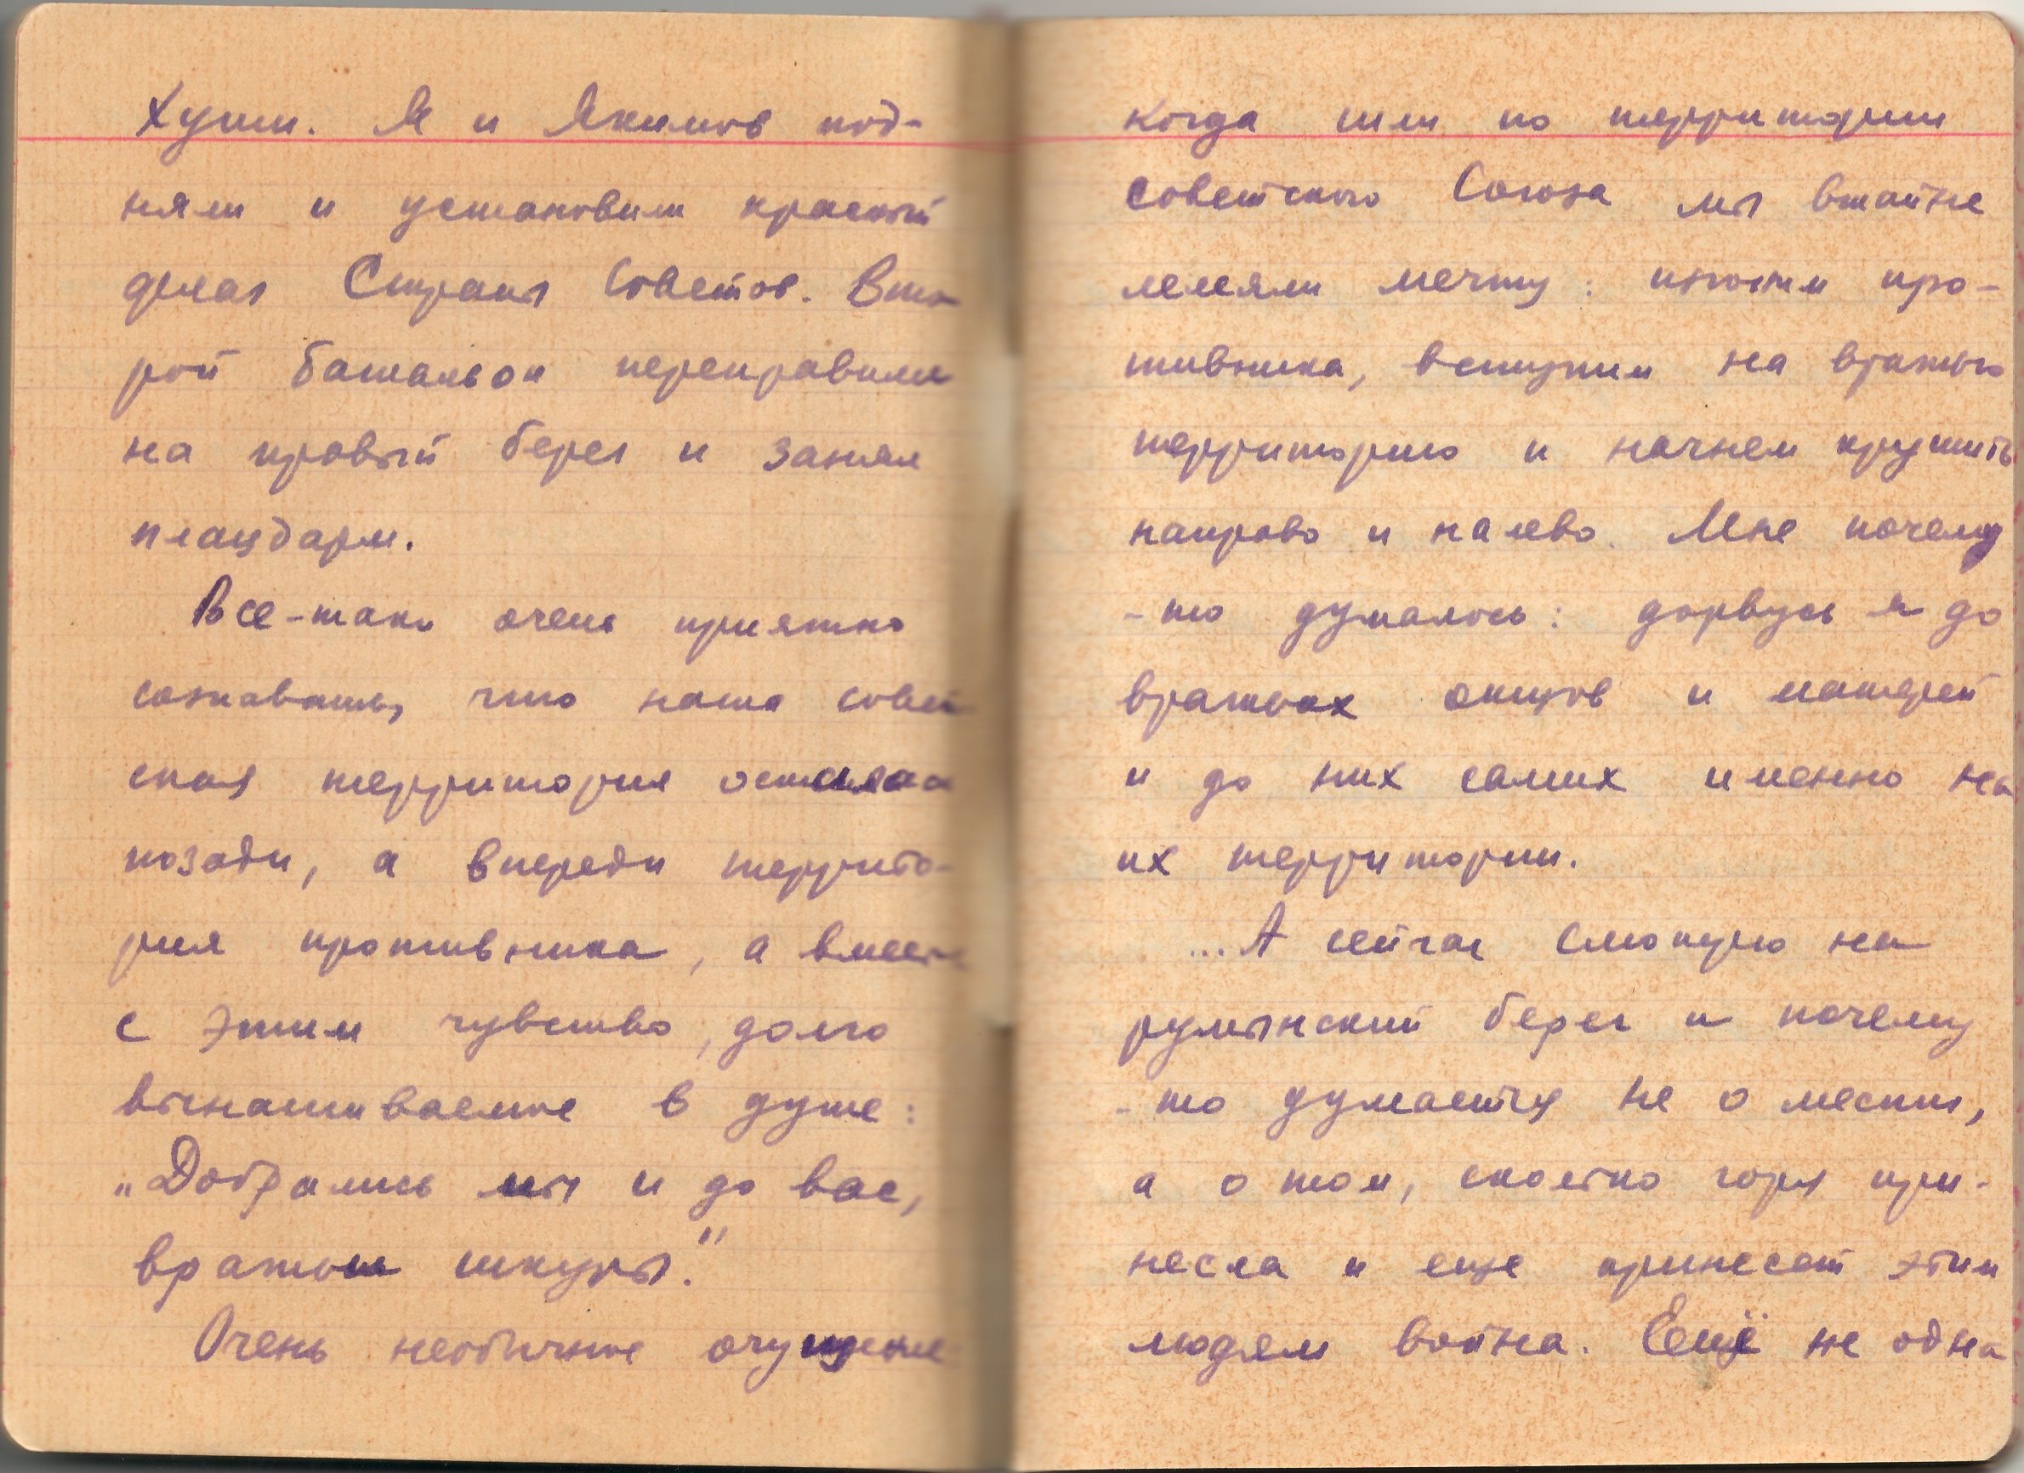 Хуши. Я и Якимов под-
няли и установили красный
флаг Страны Советов. Вто
рой батальон переправили
на правый берег и занял
плацдарм.
Все-таки очень приятно
сознавать, что наша совет
ская территория осталась
позади, а впереди террито-
рия противника, а вместе
с этим чувство, долго
вынашиваемое в душе:
„Добрались мы и до вас,
вражьи шкуры."
Очень необычное очущение
когда шли по территории
Советского Союза мы втайне
лелеяли мечту: изгоним про-
тивника, вступим на вражью
территорию и начнем крушить
направо и налево. Мне почему
-то думалось: дорвусь я до
вражьих отцов и матерей
и до них самих именно на
их территории.
...А сейчас смотрю на
румынский берег и почему
-то думается не о мести,
а о том, сколько горя при-
несла и еще принесет этим
людям война. Ещё не одна